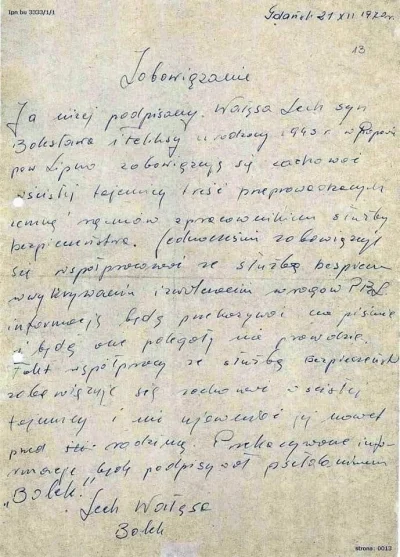 Ipn bu 3333/1/1
Gdańsk 21 XII 1970r.
13
Zobowiązanie
Ja niżej podpisany. Wałęsa Lech syn
Bolesława i Feliksy urodzony 1943 r w Popowie
pow Lipno zobowiązuję się zachować
w ścisłej tajemnicy treść przeprowadzanych
zemną rozmów z pracownikiem służby
bezpieczeństwa. Jednocześnie zobowiązuję
się współpracować ze służbą bezpiecz
w wykrywaniu i zwalczaniu wrogów PRL
informację będę przekazywać na piśmie
i będą one polegały na prawdzie.
Fakt współpracy ze służbą Bezpieczeńst
zobowiązuje się zachować w ścisłej
tajemnicy i nie ujawniać jej nawet
przed rodziną. Przekazywane info-
rmacje będę podpisywał pseudonimem
„Bolek."
Lech Wałęsa
Bolek
strona: 0013